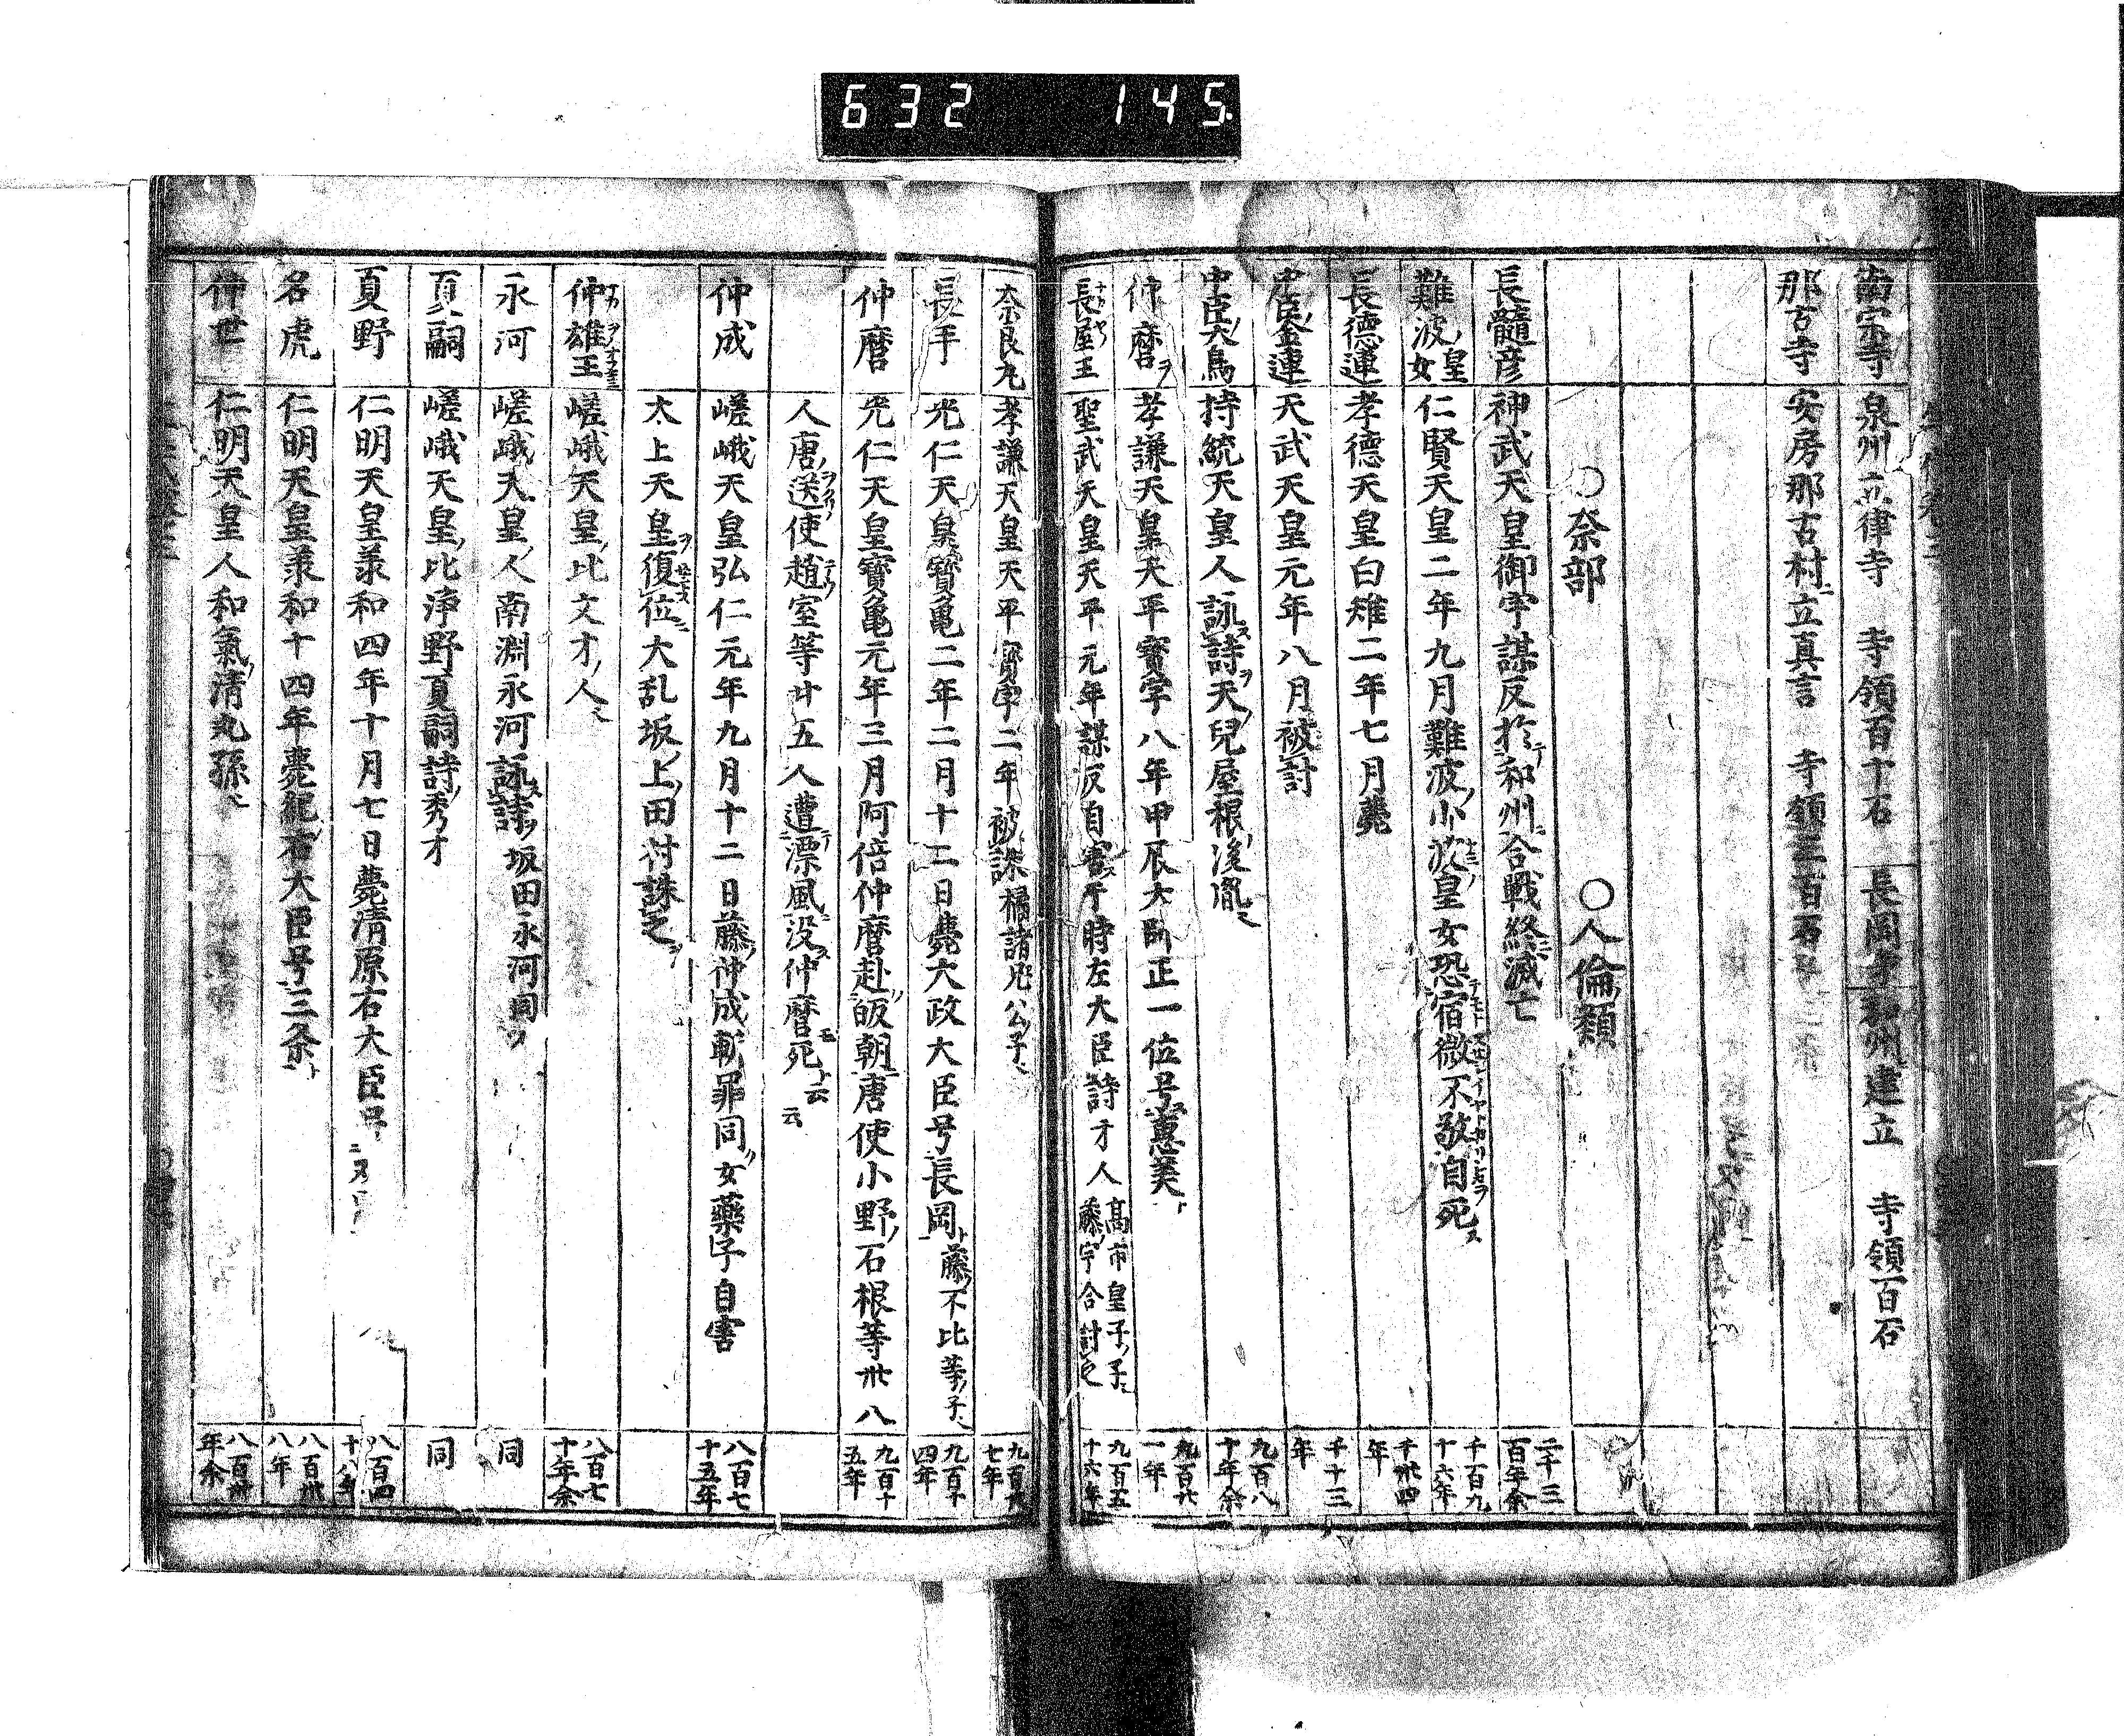 632 145
南宗寺 泉州 律寺 寺領百十石 長岡寺 和州建立 寺領百石
那古寺 安房那古村ニ立真言 寺領三百石
○奈部 ○人倫類
長髓彦 神武天皇御宇謀反於テ和州ニ合戰終ニ滅亡 二千三百年余
難波ノ皇女 仁賢天皇二年九月難波ノ小波皇女恐宿微不敬自死ス 千百九十六年
長德連 孝德天皇白雉二年七月薨 千卅四年
中臣ノ金連 天武天皇元年八月被討 千十三年
中臣ノ大鳥 持統天皇人詠ス詩ヲ天ノ兒屋根ノ後胤 九百八十年余
仲麿 孝謙天皇天平寶字八年甲辰大師正一位号惠美ト 九百廿一年
長屋王 聖武天皇天平元年謀反自害ス于時左大臣詩才人 高市皇子ノ子 藤ノ宇合討之 九百五十六年
奈良丸 孝謙天皇天平寶字二年被誅橘諸兄公ノ子 九百廿七年
長手 光仁天皇寶亀二年二月十二日薨大政大臣号長岡ト藤ノ不比等ノ子 九百十四年
仲麿 光仁天皇寶亀元年三月阿倍仲麿赴皈朝唐使小野ノ石根等卅八 九百十五年
人唐ノ送使趙室等廿五人遭テ漂風ニ没ス仲麿モ死ト云云
仲成 嵯峨天皇弘仁元年九月十二日藤ノ仲成斬罪同女藥子自害 八百七十五年
太上天皇ヲ復位ニ大乱坂ノ上ノ田村誅之ヲ
仲雄王 嵯峨天皇ノ比文才ノ人 八百七十年余
永河 嵯峨天皇ノ人南淵永河詠ス詩ヲ坂田永河同 同
夏嗣 嵯峨天皇ノ比淨野夏嗣詩ノ秀才 同
夏野 仁明天皇承和四年十月七日薨清原右大臣号 八百四十八年
名虎 仁明天皇承和十四年薨紀右大臣号三条ト 八百卅八年
仲世 仁明天皇人和氣ノ清丸孫 八百卅年余